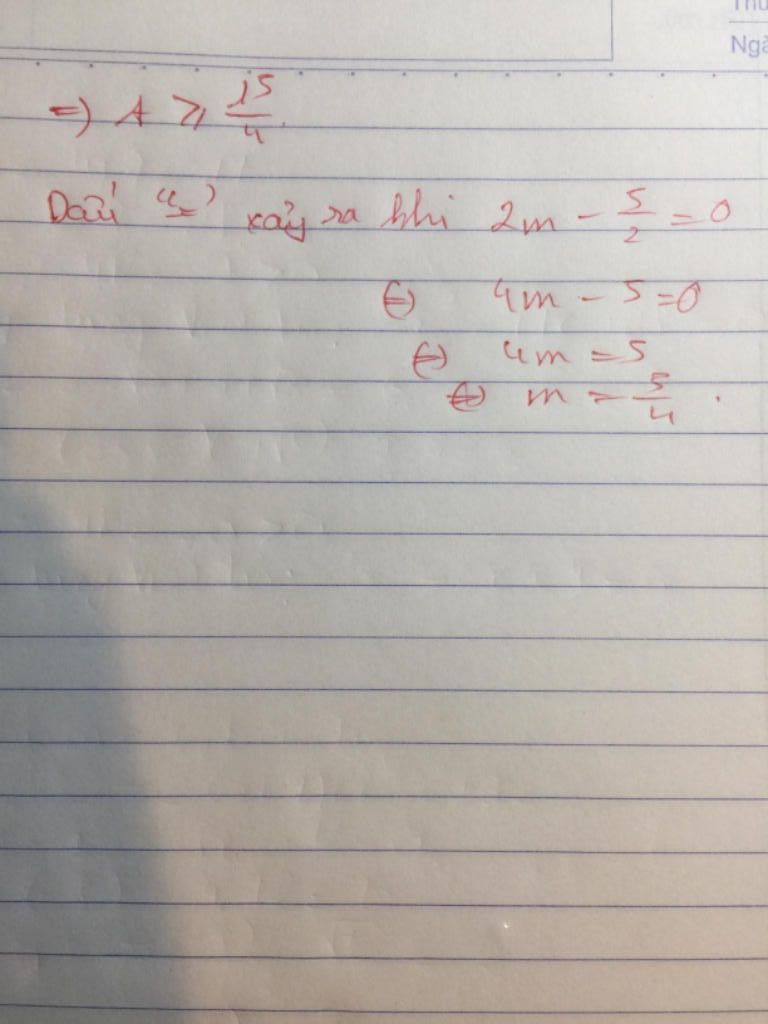 Ngà
=) A ≥ 15/4.
Dấu "=" xảy ra khi 2m - 5/2 = 0
(=) 4m - 5 = 0
(=) 4m = 5
(=) m = 5/4.